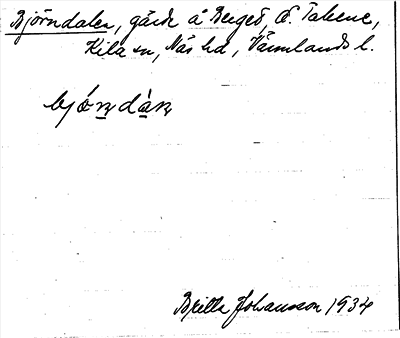 Björndalen, gårde å Berget, Ö. Takene,
Kila sn, Näs hd, Värmlands l.
bjǿɳdàɳ
Britta Johansson 1934